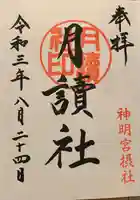 奉拝
神明宮摂社
月讀社
令和三年八月二十四日